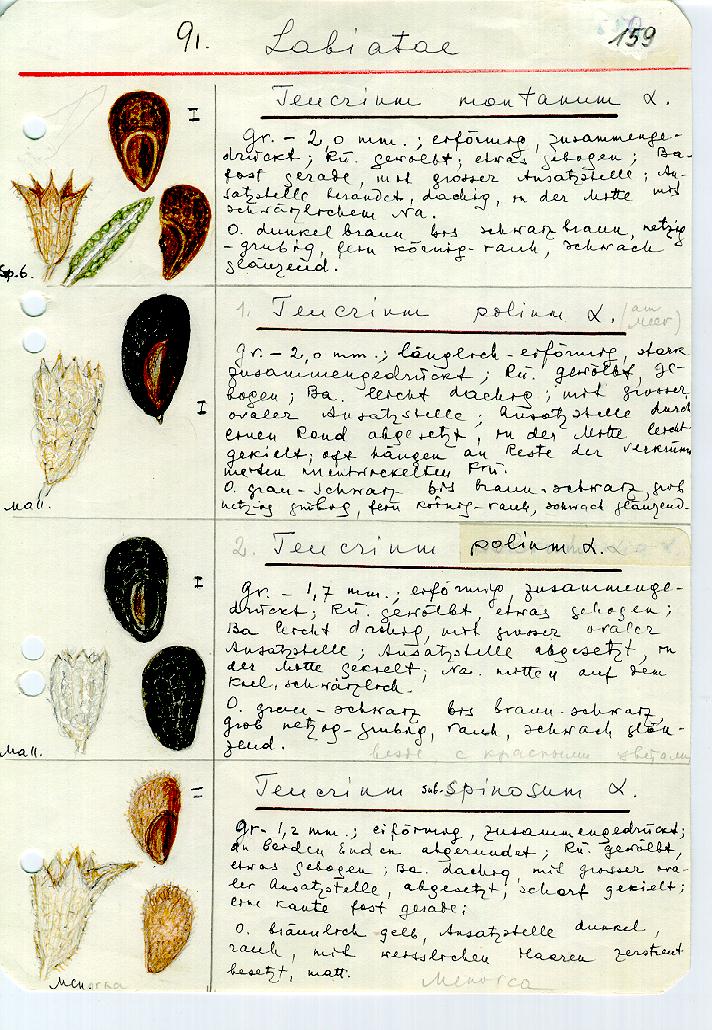 91. Labiatae 159
Teucrium montanum L.
I
Gr. - 2,0 mm.; eiförmig, zusammenge-
drückt; Rü. gewölbt; etwas gebogen; Ba-
fast gerade, mit grosser Ansatzstelle; An-
satzstelle berandet, dachig, in der Mitte mit
schwärzlichem Na.
O. dunkel braun bis schwarz braun, netzig
-grubig, fein körnig-rauh, schwach
glänzend.
Sp. 6.
1. Teucrium polium L. (am
Meer)
I
Gr. - 2,0 mm.; länglich-eiförmig, stark
zusammengedrückt; Rü. gewölbt, ge-
bogen; Ba. leicht dachig; mit grosser
ovaler Ansatzstelle; Ansatzstelle durch
einen Rand abgesetzt, in der Mitte leicht
gekielt; oft hängen an Reste der verküm
merten unentwickelten Frü.
O. grau-schwarz bis braun-schwarz, grob
netzig grubig, fein körnig-rauh, schwach glänzend.
Mall.
2. Teucrium polium L.
I
Gr. - 1,7 mm.; eiförmig, zusammenge-
drückt; Rü. gewölbt, etwas gebogen;
Ba leicht dachig, mit grosser ovaler
Ansatzstelle; Ansatzstelle abgesetzt, in
der Mitte gekielt; Na. mitten auf dem
Kiel, schwärzlich.
O. grau-schwarz bis braun-schwarz,
grob netzig-grubig, rauh, schwach glän-
zend.
везде, с красными цветами
Mall.
Teucrium sub-spinosum L.
Gr- 1,2 mm.; eiförmig, zusammengedrückt;
an beiden Enden abgerundet; Rü. gewölbt,
etwas gebogen; Ba. dachig, mit grosser ova-
ler Ansatzstelle, abgesetzt, scharf gekielt;
eine Kante fast gerade;
O. bräunlich gelb, Ansatzstelle dunkel,
rauh, mit weisslichen Haaren zerstreut
besetzt, matt.
Menorca
Menorca